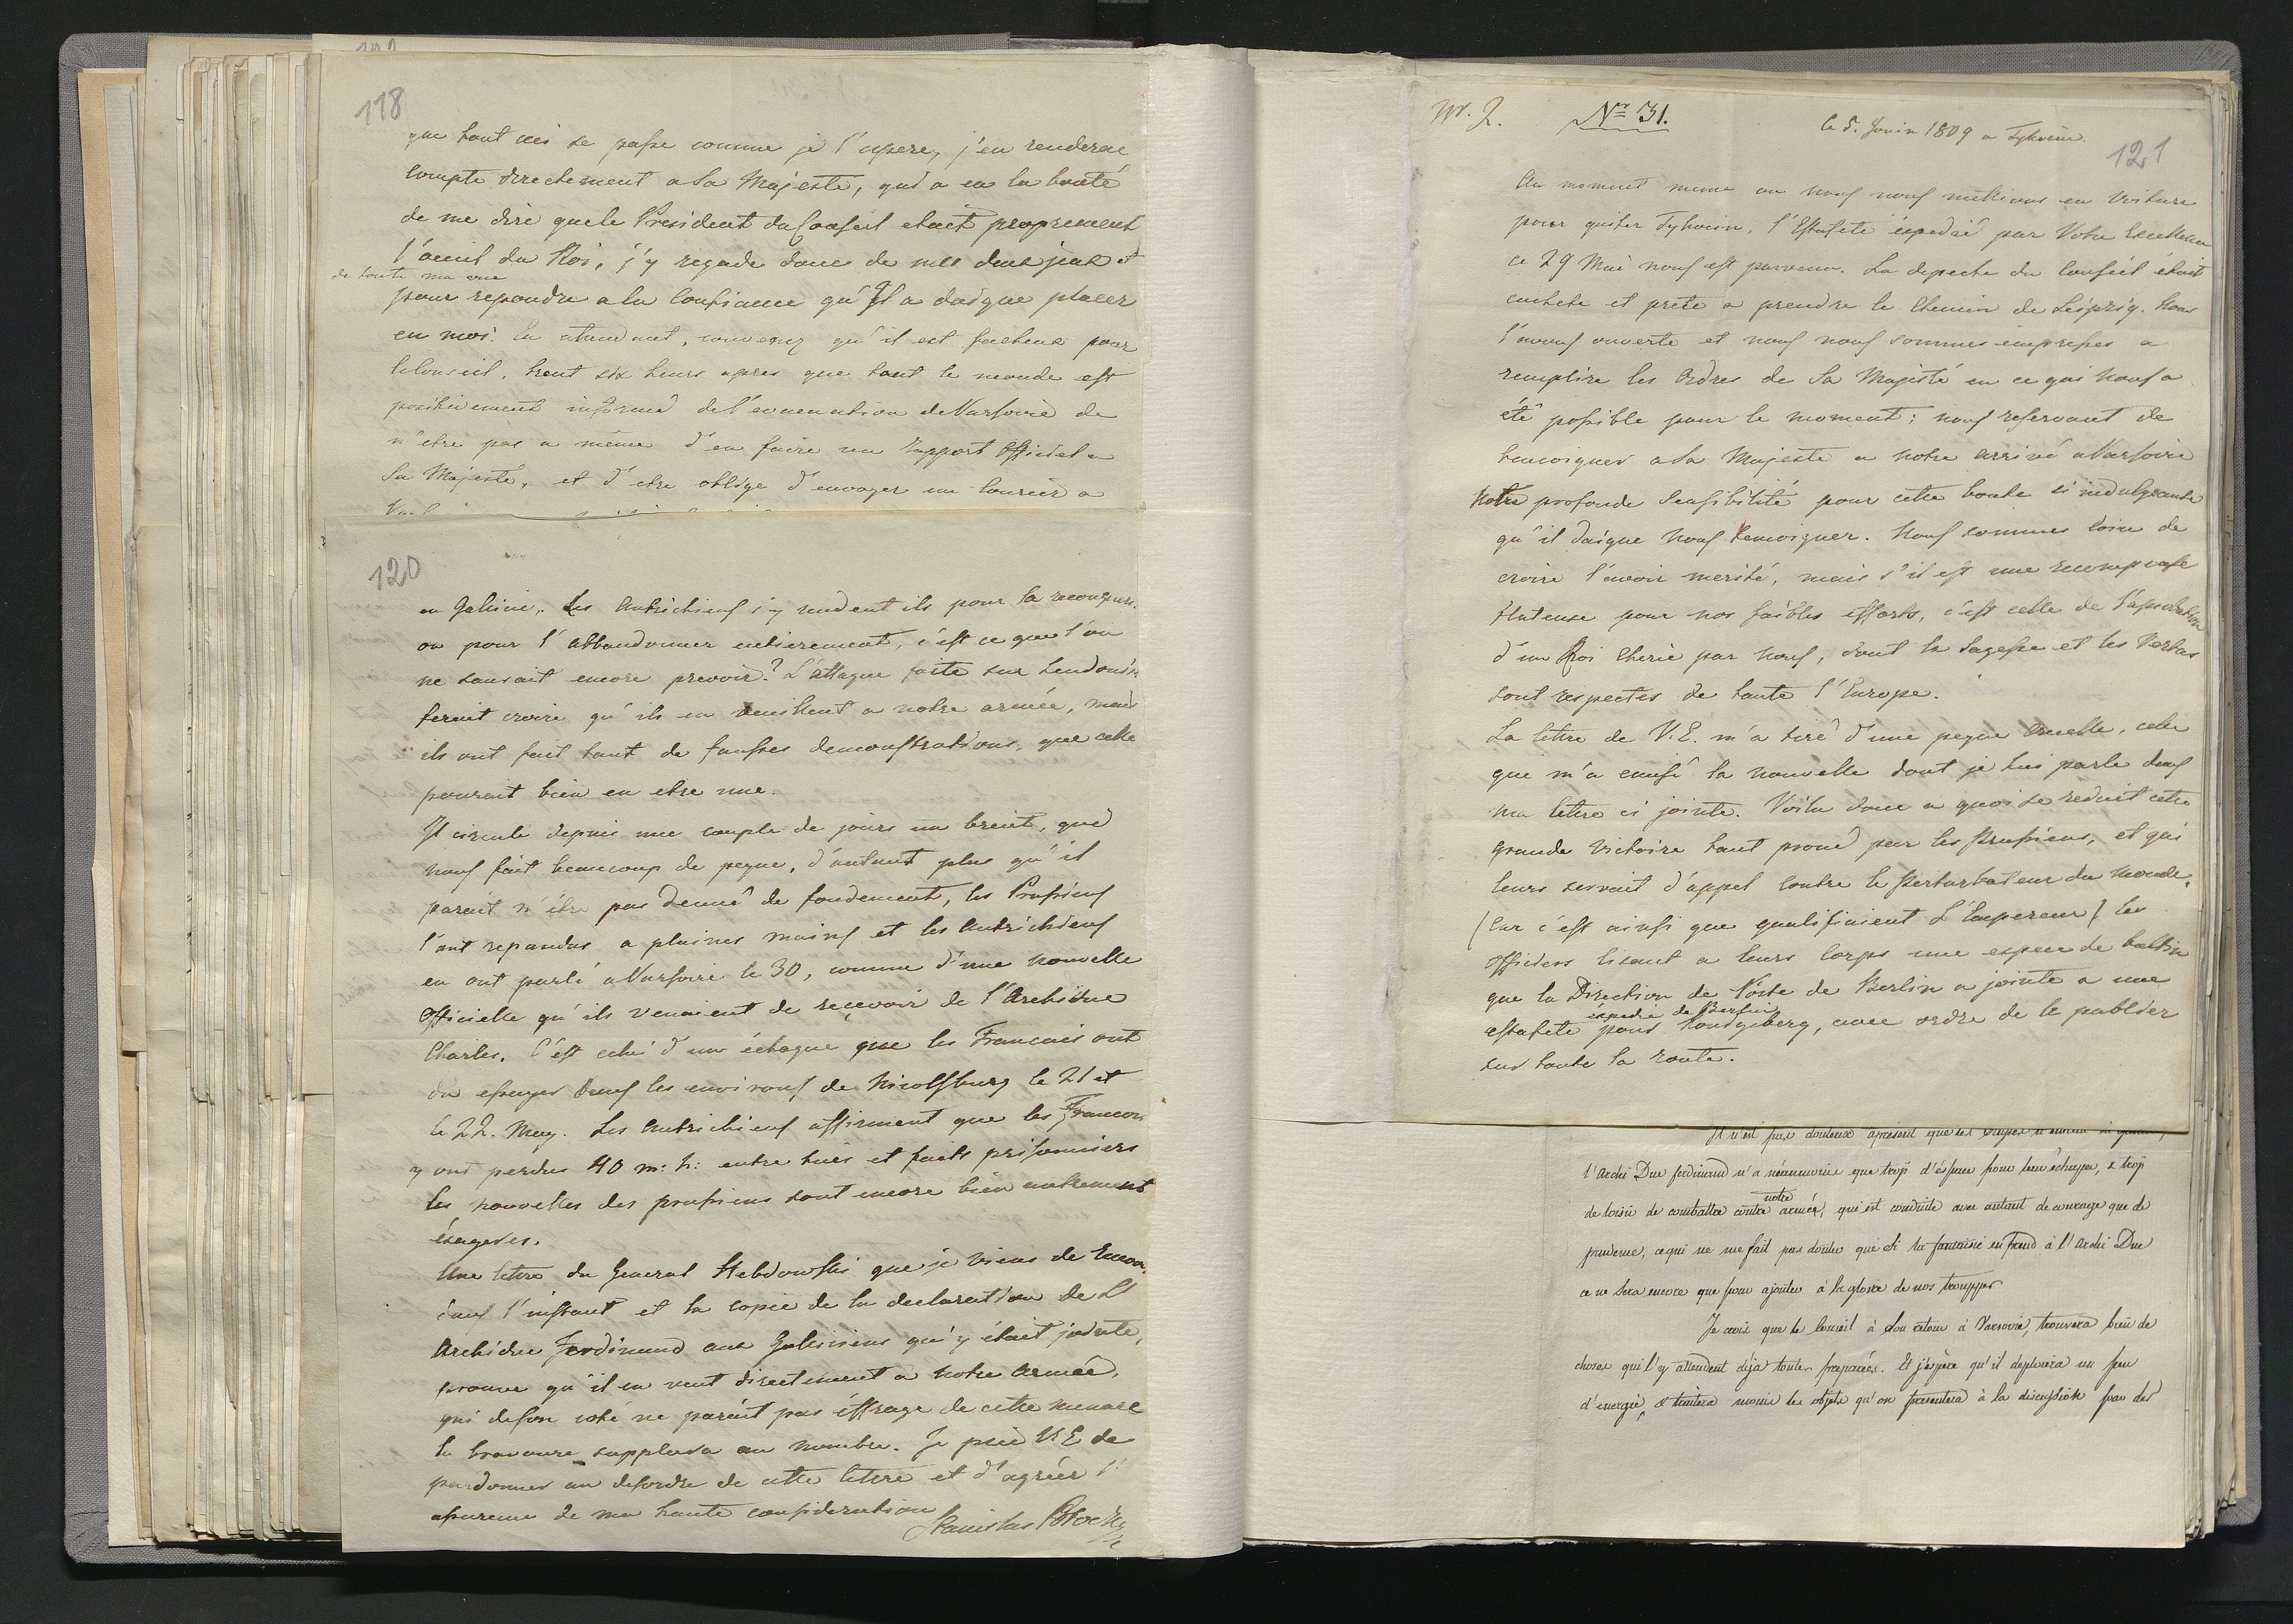 118
que tout ceci se passe comme je l'espere, j'en renderai
compte directement a Sa Majesté, qui a eu la bonté
de me dire que le President du Conseil etait proprement
l'oeuil du Roi, j'y regarde donc de mes deux jeux et
de toute ma vue
pour repondre a la Confiance qu'Il a daigné placer
en moi. En attendant, convenez qu'il est facheux pour
le Conseil, trent six heurs apres que tout le monde est
positivement informé de l'evacuation de Varsovie de
n'etre pas a même d'en faire un rapport Officiel a
Sa Majesté, et d'etre obligé d'envoyer un Courier a
120
en Galicie. Les Autrichiens s'y rendent ils pour la reconquer.
ou pour l'abbandonner entierement, c'est ce que l'on
ne saurait encore prevoir? L'attaque faite sur Sendomir
ferait croire qu'ils en veuillent a notre armée, mais
ils ont fait tant de fausses demonstrations, que celle
pourait bien en etre une.
Il circule depuis une couple de jours un bruit, qui
nous fait beaucoup de pegne, d'autant plus qu'il
parait n'être pas denué de fondement, les Prussiens
l'ont repandus a pleines mains et les Autrichiens
en ont parlé a Varsovie le 30, comme d'une nouvelle
Officielle qu'ils venaient de reçevoir de l'Archiduc
Charles. C'est celui d'un écheque que les Francais ont
du essuyer dans les environs de Nicolsburg le 21 et
le 22. May. Les Autrichiens affirment que les Francais
y ont perdus 40 m: h: entre tués et faits prisonniers
les nouvelles des prussiens sont encore bien autrement
éxageres.
Une lettre du General Hebdowski que je viens de recevoir
dans l'instant et la copie de la declaration de L'
Archiduc Ferdinand aux Galiciens qui y était jointe,
prouve qu'il en veut directement a notre armée,
qui de son coté ne parait pas éffrayé de cette menace
la bravoure suppleera au nombre. Je prie V.E de
pardonner au desordre de cette lettre et d'agréer l'
assurence de ma haute consideration
Stanislas Potocki
Nr. 2.
Nro 31.
le 5. Jouin 1809 a Tykocin.
121
Au moment meme ou nous nous mettions en Voiture
pour quiter Tykocin, l'Estafete éxpedié par Votre Excellence
ce 29 Mai nous est parvenu. La depeche du Conseil était
cachete et prete a prendre le Chemin de Leipzig. Nous
l'avons ouverte et nous nous sommes empresses a
remplire les Ordres de Sa Majesté en ce qui nous a
été possible pour le moment; nous reservant de
temoigner a Sa Majesté a notre arrivé a Varsovie
Notre profonde Sensibilité pour cette bonte si indulgeante
qu'il daigne nous temoigner. Nous sommes loin de
croire l'avoir merité, mais s'il est une recompense
flateuse pour nos faibles efforts, c'est celle de l'aprobation
d'un Roi Cherie par nous, dont la sagesse et les Vertus
sont respectés de toute l'Europe.
La lettre de V.E. m'a tiré d'une pegne cruelle, celle
que m'a causé la nouvelle dont je lui parle dans
ma lettre ci jointe. Voila donc a quoi se reduit cette
grande victoire tant proné par les Prussiens, et qui
leurs servait d'appel contre le Perturbateur du Monde,
(Car c'est ainsi que qualifiaient L'Empereur) les
Officiers lisant a leurs Corps une espece de bultin
que la Direction de Poste de Berlin a jointe a une
éxpedié de Berlin
estafete pour Konigsberg, avec ordre de le publier
sur toute la route.
Il n'est pas douteux apresent que les
l'Archi Duc ferdinand n'a néanmoins que trop d'espace pour bien échapper, & trop
notre
de loisir de combattre contre armée, qui est conduite avec autant de courage que de
prudence, ce qui ne me fait pas douter que si la fantaisie en prend à l'Archi Duc
ce ne sera encore que pour ajouter à la gloire de nos trouppes
Je crois que le Conseil à son retour à Varsovie, trouvera bien de
choses qui l'y attendent déja toutes preparées. Et j'espère qu'il deploiera un peu
d'energie, & traitera moins les objets qu'on presentera à la discussion par des